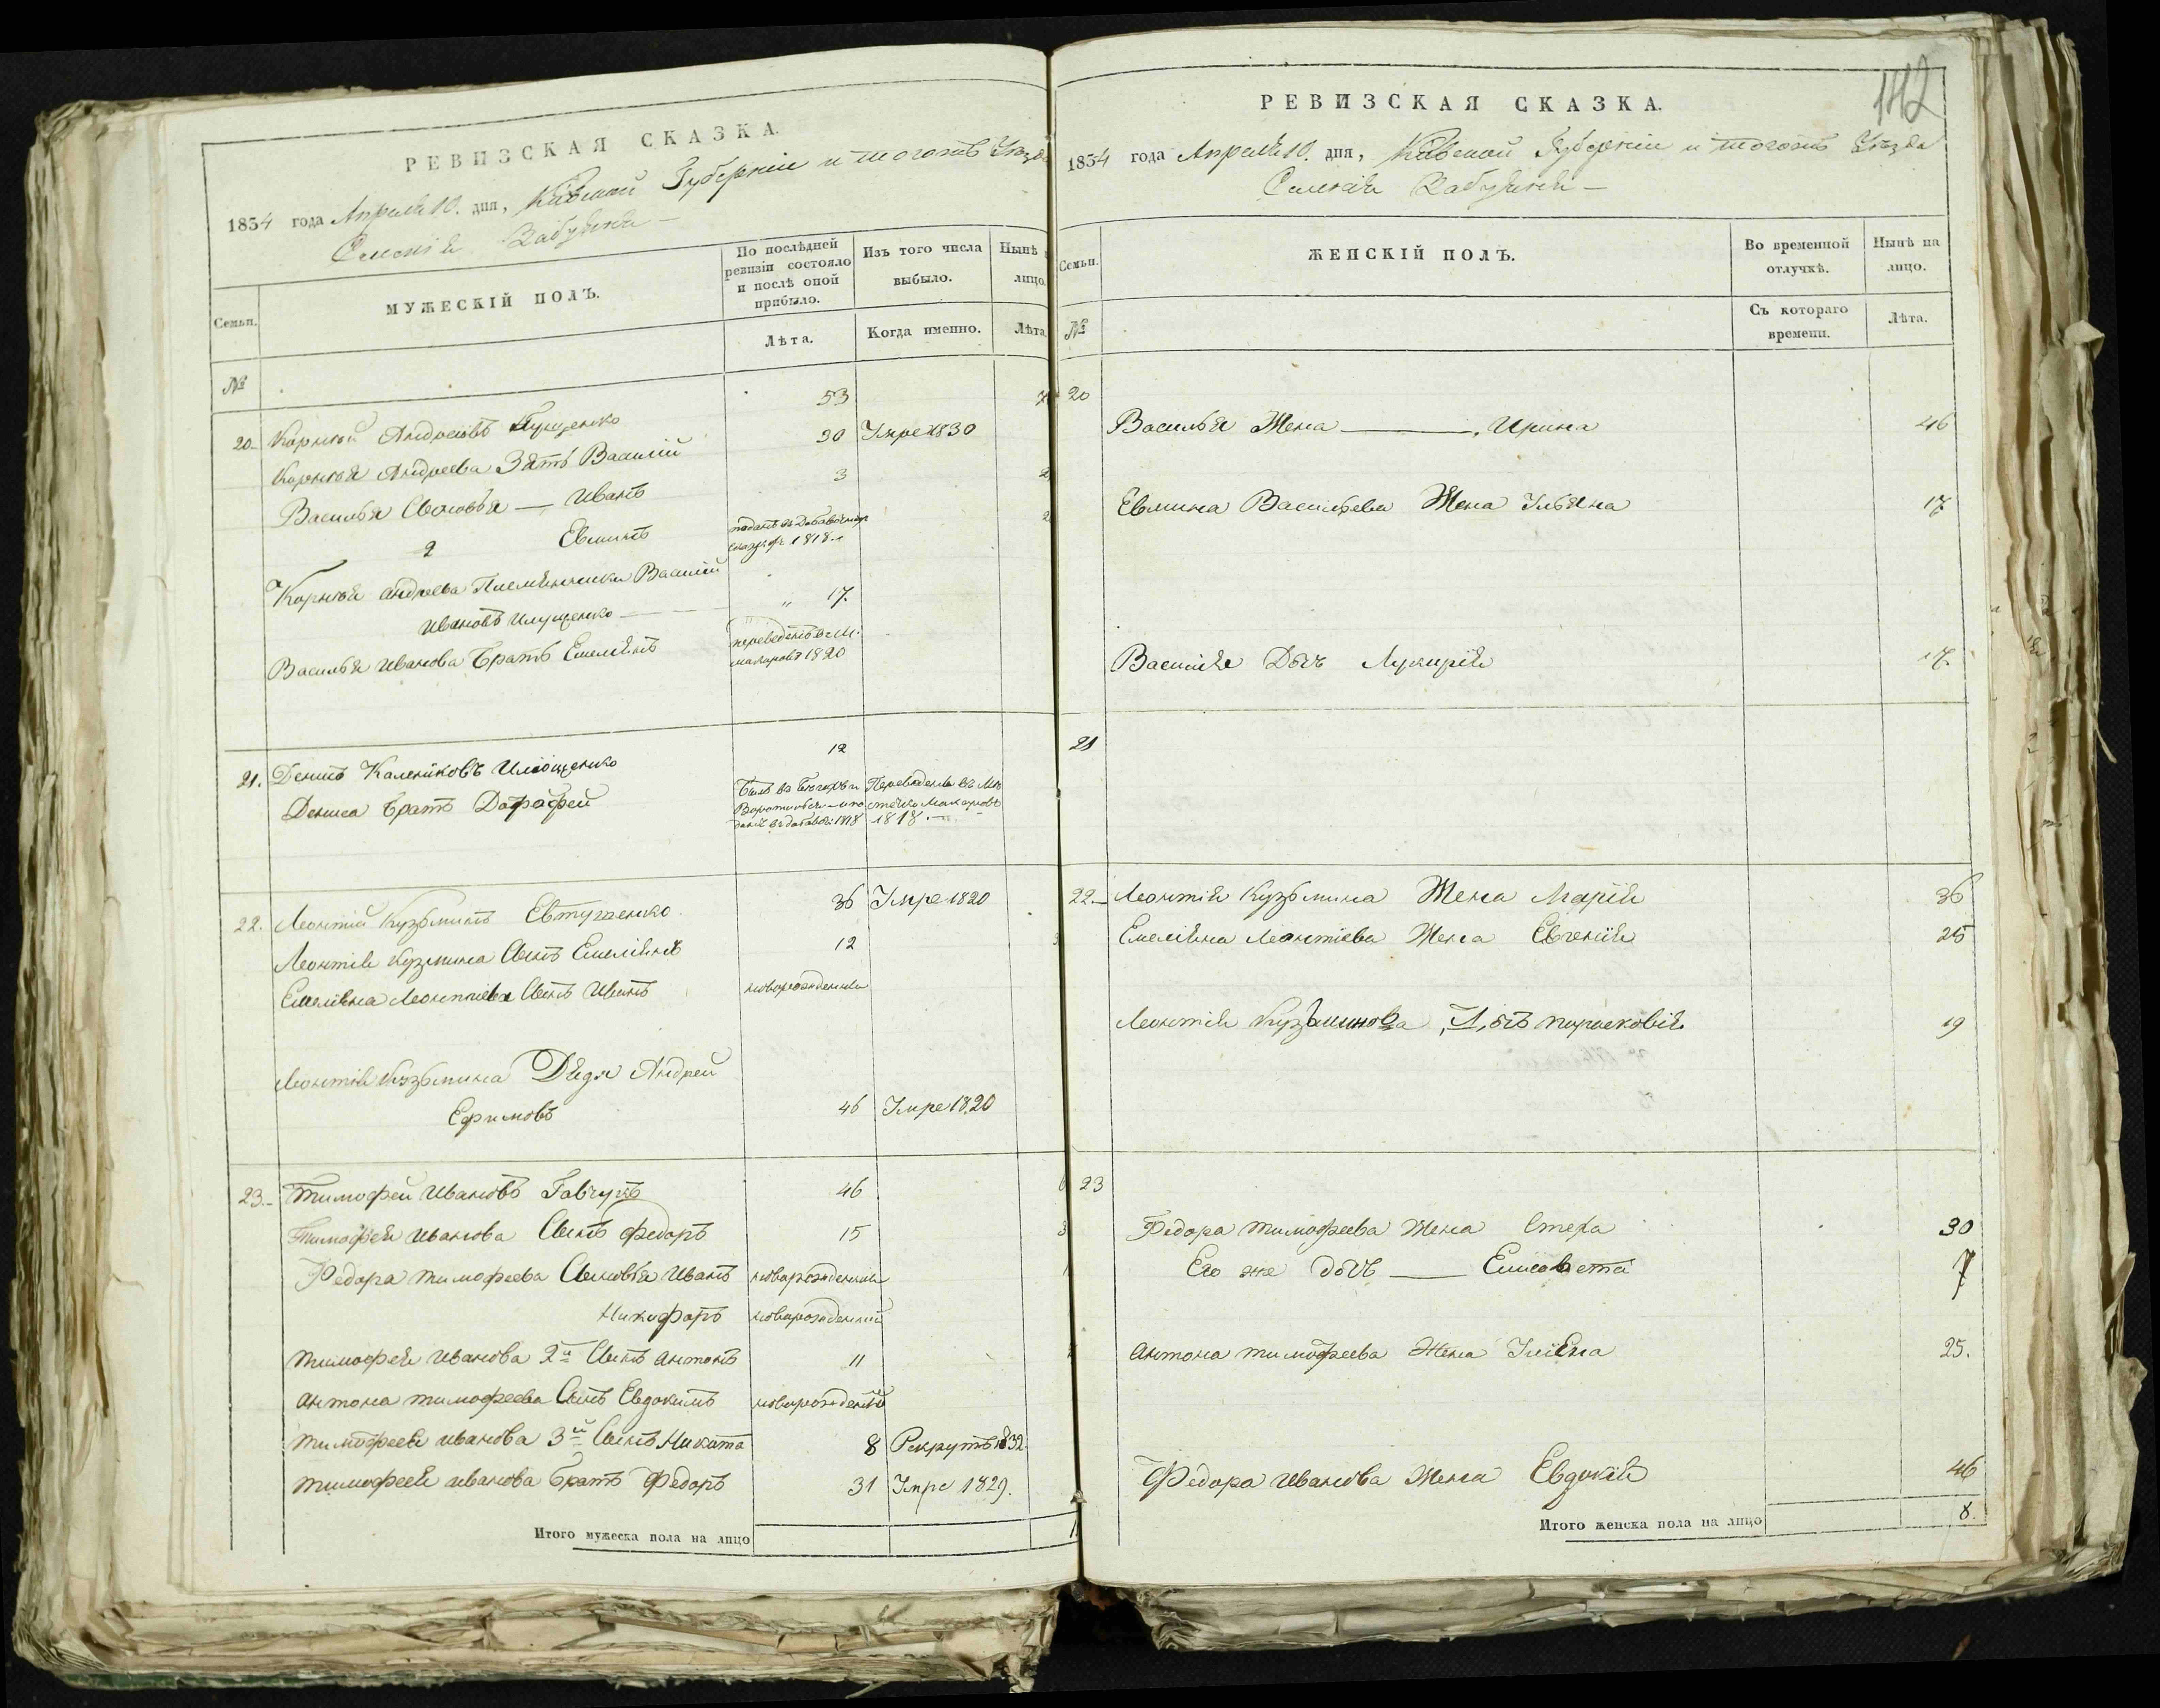 РЕВИЗСКАЯ СКАЗКА.
1834 года Апреля 10. дня, Кіевской Губерніи и тогожъ Уѣзда
Селенія
Семьи.
МУЖЕСКІЙ ПОЛЪ.
По послѣдней ревизіи состояло и послѣ оной прибыло.
Изъ того числа выбыло.
Нынѣ
лицо.
Лѣта.
Когда именно.
Лѣта
№
20. Корній Андреевъ 53
Корнѣя Андреева Зять Василій 30 Умре 1830
Василья Сыновья — Иванъ 3
2
поданъ въ добавочной
сказкѣ 1818.
Корнѣя Андреева Племянники Василій
Ивановъ Илущенко — " 17.
Василья Иванова Братъ Емельянъ переведенъ въ м.
макаровъ 1820
21. Денисъ Калениковъ Илющенко 12
Дениса Братъ Дорофей
Переведены въ Мѣ
стечко Макаровъ
1818.
22. Леонтій Кузьминъ 36 Умре 1820
Леонтія Кузмина Сынъ Емеліянъ 12
Емеліяна Леонтіева Сынъ Иванъ новорожденны
Леонтія Кузьмина Дядя Андрей
Ефимовъ 46 Умре 1820
23. Тимофей Ивановъ 46
Тимофея Иванова Сынъ Федоръ 15
Федора Тимофеева Сыновья Иванъ новорожденны
Никифоръ новорожденный
Тимофея Иванова 2й Сынъ Антонъ 11
Антона Тимофеева Сынъ Евдокимъ новорожденный
Тимофеея Иванова 3й Сынъ Никита 8 Рекрутъ 1832.
Тимофеея Иванова Братъ Федоръ 31 Умре 1829.
Итого мужеска пола на лицо
142
РЕВИЗСКАЯ СКАЗКА.
1834 года Апреля 10. дня, Кіевской Губерніи и тогожъ Уѣзда
Селенія
Семьи.
ЖЕНСКІЙ ПОЛЪ.
Во временной отлучкѣ.
Нынѣ на лицо.
№
Съ котораго времени.
Лѣта.
20
Василья Жена — Ирина 46
Евмина Васильева Жена Ульяна 17
Василія Дочь Лукирія 17.
21
22. Леонтія Кузьмина Жена Марія 36
Емеліяна Леонтіева Жена Евгенія 25
Леонтія Кузьминова Дочь параскевія 19
23
Федора Тимофеева Жена Стеха 30
Его же дочь — Елисавета 7
Антона Тимофеева Жена 25.
Федора Иванова Жена Евдокія 46
Итого женска пола на лицо 8.